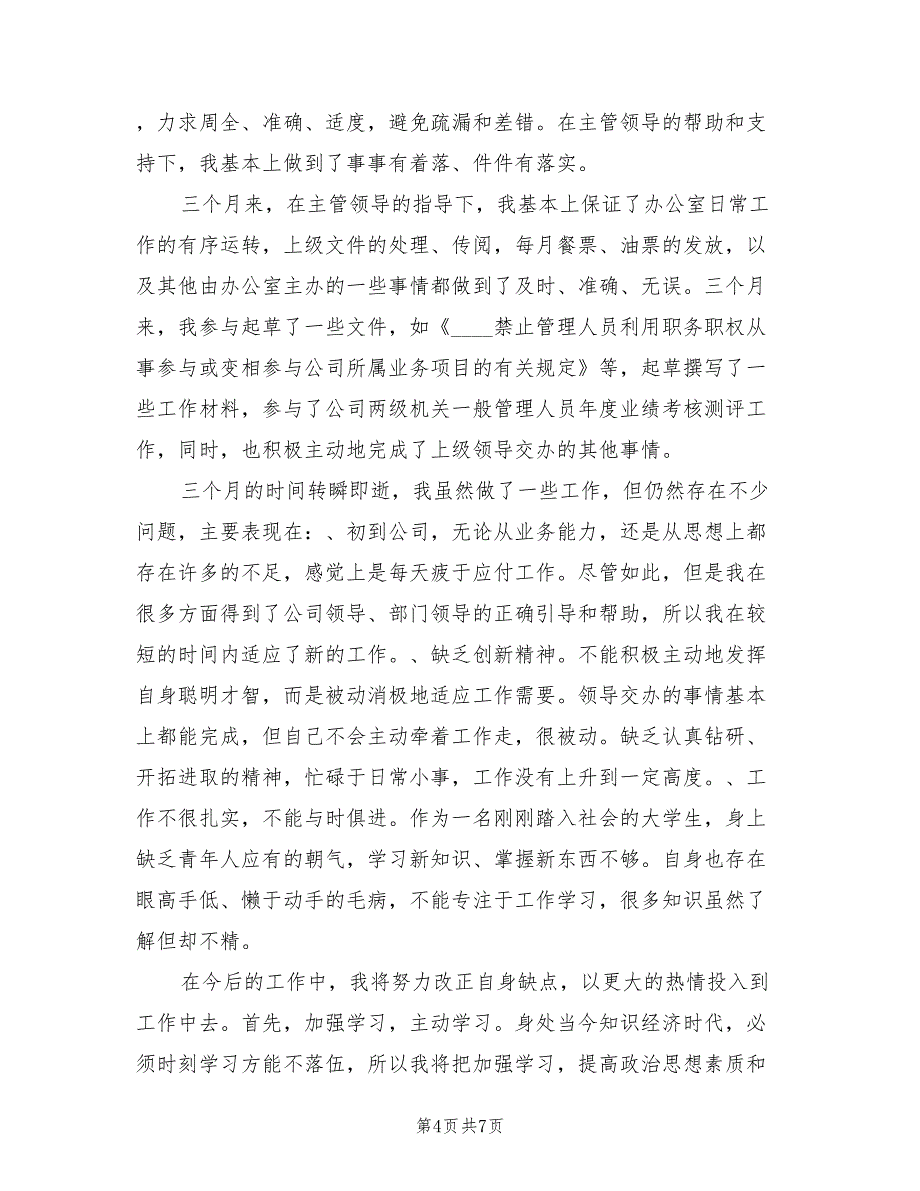 ，力求周全、准确、适度，避免疏漏和差错。在主管领导的帮助和支
持下，我基本上做到了事事有着落、件件有落实。
三个月来，在主管领导的指导下，我基本上保证了办公室日常工
作的有序运转，上级文件的处理、传阅，每月餐票、油票的发放，以
及其他由办公室主办的一些事情都做到了及时、准确、无误。三个月
来，我参与起草了一些文件，如《____禁止管理人员利用职务职权从
事参与或变相参与公司所属业务项目的有关规定》等，起草撰写了一
些工作材料，参与了公司两级机关一般管理人员年度业绩考核测评工
作，同时，也积极主动地完成了上级领导交办的其他事情。
三个月的时间转瞬即逝，我虽然做了一些工作，但仍然存在不少
问题，主要表现在：、初到公司，无论从业务能力，还是从思想上都
存在许多的不足，感觉上是每天疲于应付工作。尽管如此，但是我在
很多方面得到了公司领导、部门领导的正确引导和帮助，所以我在较
短的时间内适应了新的工作。、缺乏创新精神。不能积极主动地发挥
自身聪明才智，而是被动消极地适应工作需要。领导交办的事情基本
上都能完成，但自己不会主动牵着工作走，很被动。缺乏认真钻研、
开拓进取的精神，忙碌于日常小事，工作没有上升到一定高度。、工
作不很扎实，不能与时俱进。作为一名刚刚踏入社会的大学生，身上
缺乏青年人应有的朝气，学习新知识、掌握新东西不够。自身也存在
眼高手低、懒于动手的毛病，不能专注于工作学习，很多知识虽然了
解但却不精。
在今后的工作中，我将努力改正自身缺点，以更大的热情投入到
工作中去。首先，加强学习，主动学习。身处当今知识经济时代，必
须时刻学习方能不落伍，所以我将把加强学习，提高政治思想素质和
第4页共7页